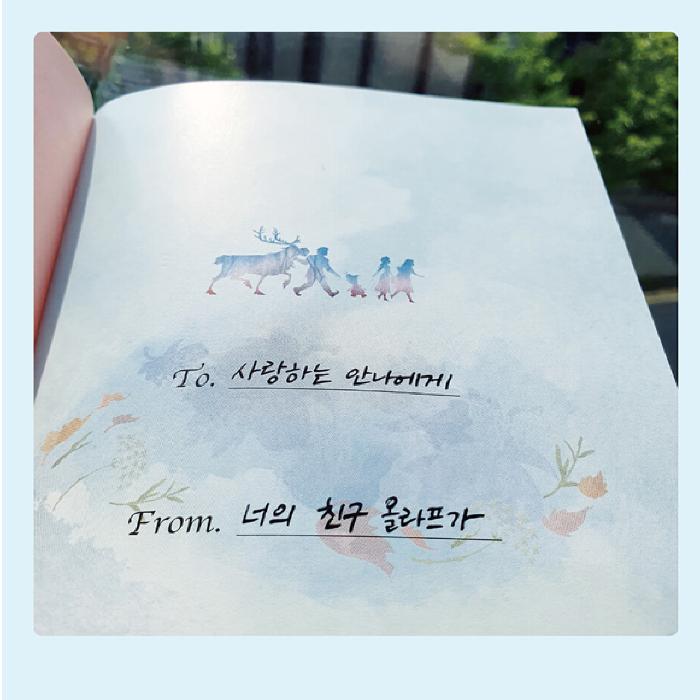 To. 사랑하는 안나에게
From. 너의 친구 올라프가